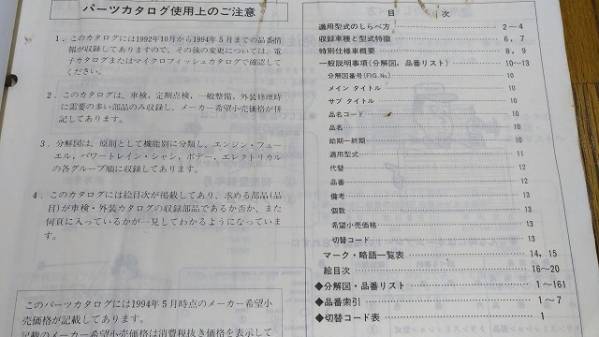 パーツカタログ使用上のご注意
1．このカタログには1992年10月から1994年5月までの品番情
報が収録してありますので、その後の変更については、電
子カタログまたはマイクロフィッシュカタログで確認して
ください。
2．このカタログには、車検、定期点検、一般整備、外装修理時
に需要の多い部品のみ収録し、メーカー希望小売価格が併
記してあります。
3．分解図は、原則として機能別に分類し、エンジン・フュー
エル、パワートレイン・シャシ、ボデー、エレクトリカル
の各グループ順に収録してあります。
4．このカタログには絵目次が掲載してあり、求める部品(品
目)が車検・外装カタログの収録部品であるか否か、また
何頁に入っているかが一見してわかるようになっていま
す。
このパーツカタログには1994年5月時点のメーカー希望小
売価格が記載してあります。
記載のメーカー希望小売価格は消費税抜き価格を表示して
目 次
適用型式のしらべ方 2～4
収録車種と型式特徴 6, 7
特別仕様車概要 8, 9
一般説明事項(分解図、品番リスト) 10～13
分解図番号(FIG No.) 10
メイン タイトル 10
サブ タイトル 10
品名コード 10
品名 10
始期ー終期 10
適用型式 11
代替 12
品番 12
備考 13
個数 13
希望小売価格 13
切替コード 13
マーク・略語一覧表 14, 15
絵目次 16～20
◆分解図・品番リスト 1～161
◆品番索引 1～7
◆切替コード表 1